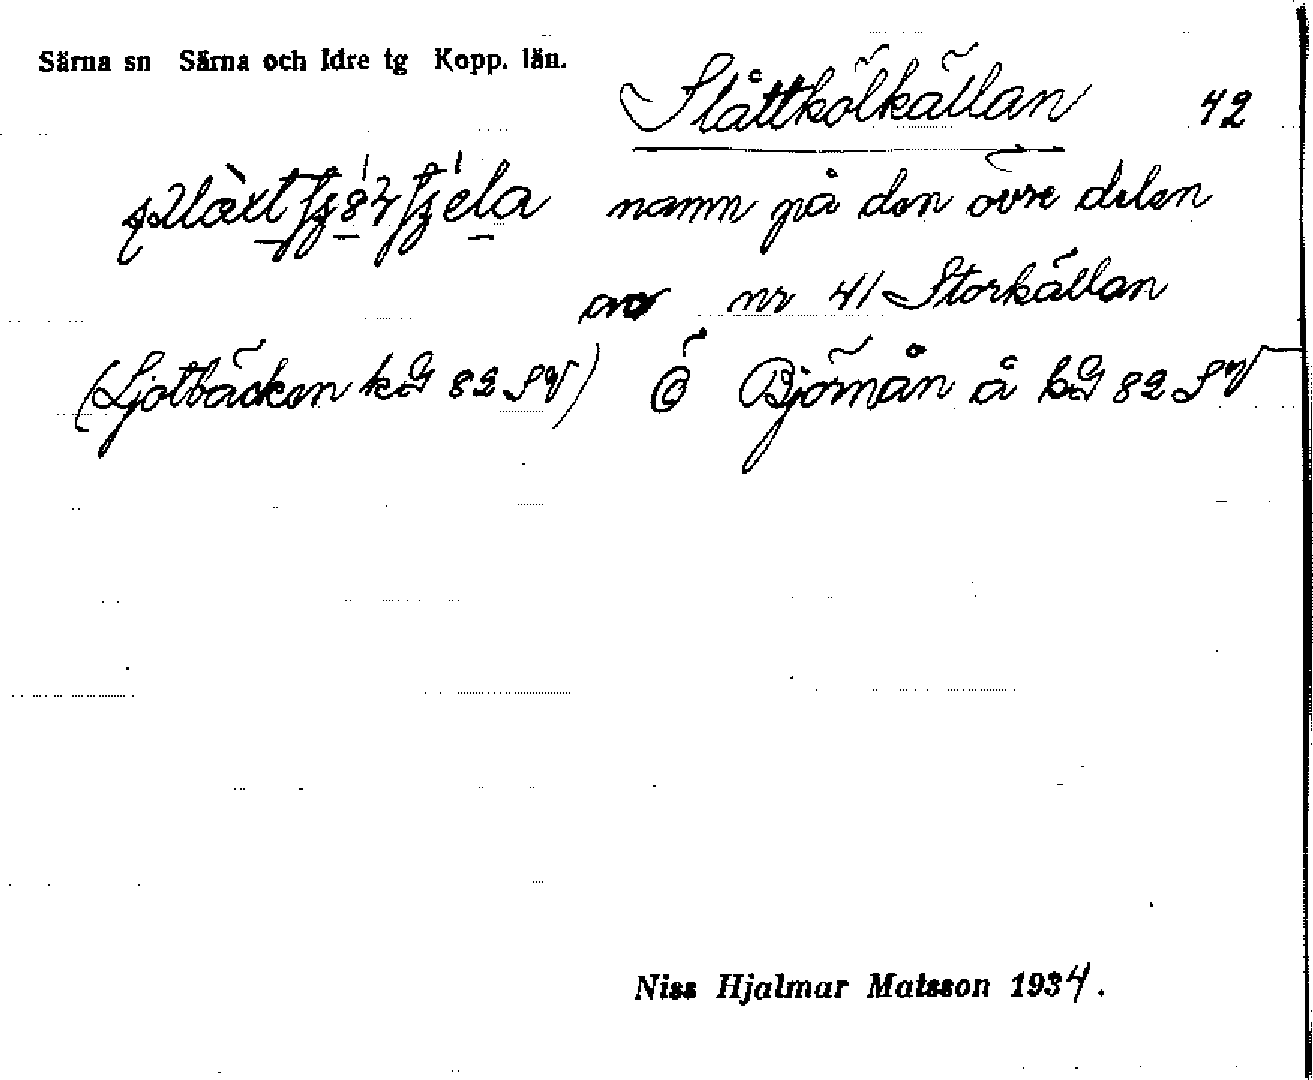 Särna sn Särna och Idre tg Kopp. län.
Slåttkölkällan 42
namn på den övre delen
av nr 41 Storkällan
(Ljotbäcken kG 82 SV) Ö Björnån å kG 82 SV
Niss Hjalmar Matsson 1934.